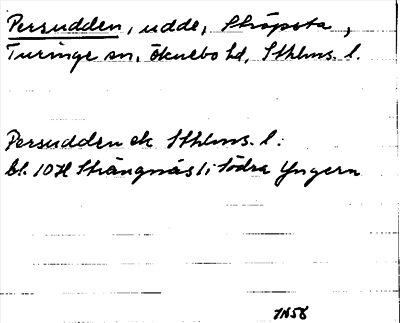 Persudden, udde, Ströpsta,
Turinge sn, Öknebo hd, Sthlms. l.
Persudden ek Sthlms. l.
bl. 10H Strängnäs i södra Yngern
1958